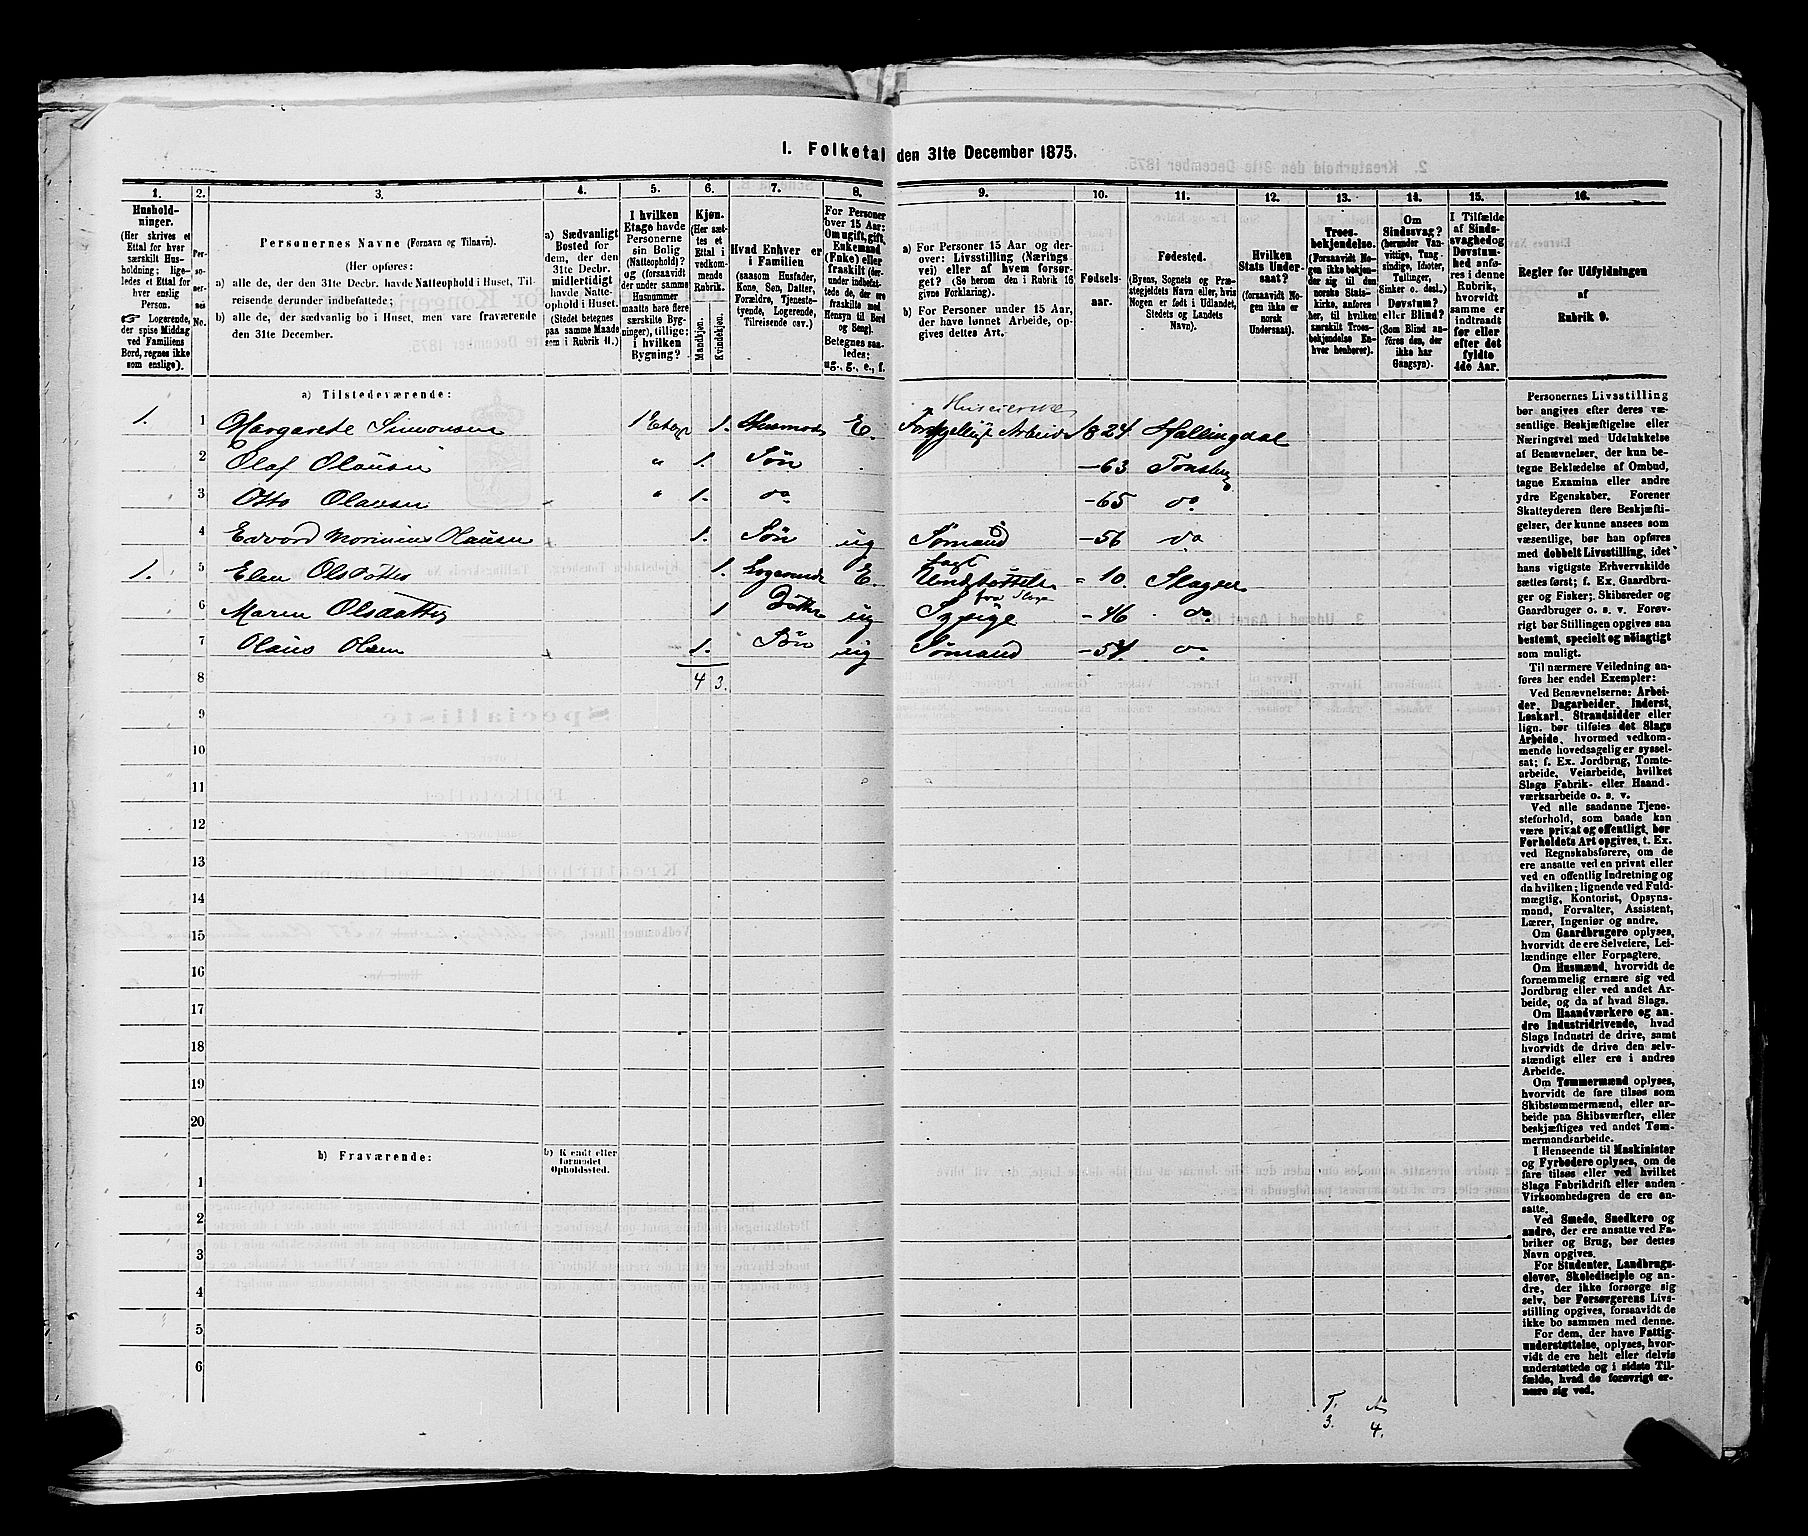 I. Folketal den 31te December 1875.
1. 2. 3. 4. 5. 6. 7. 8. 9. 10. 11. 12. 13. 14. 15. 16.
Husholdninger.
(Her skrives et
Ettal for hver
særskilt Husholdning;
ligeledes et Ettal
for hver
enslig
Person.
☞ Logerende,
der spise Middag
ved Familiens
Bord, regnes ikke
som enslige).
Personernes No.
Personernes Navne (Fornavn og Tilnavn).
(Her opføres:
a) alle de, der den 31te Decbr. havde Natteophold i Huset, Tilreisende derunder indbefattede;
b) alle de, der sædvanlig bo i Huset, men vare fraværende
den 31te December.
a) Sædvanligt
Bosted for
dem, der den
31te Decbr.
midlertidigt
havde Natteophold i Huset.
(Stedet betegnes
paa samme Maade
som i Rubrik 11.)
I hvilken
Etage havde
Personerne
sin Bolig
(Natteophold)?
og (forsaavidt
der under samme
Husnummer
maatte høre flere
særskilte Bygninger), tillige:
i hvilken
Bygning?
Kjøn.
(Her sættes et
Ettal i
vedkommende
Rubrik.
Mandkjøn.
Kvindekjøn.
Hvad Enhver er
i Familien
(saasom Husfader,
Kone, Søn, Datter,
Forældre, Tjenestetyende, Logerende,
Tilreisende osv.)
For Personer
over 15 Aar:
Om ugift, gift,
Enkemand
(Enke) eller
fraskilt (derunder indbefattede de, der ere
fraskilte med
Hensyn til Bord
og Seng).
Betegnes saaledes:
ug., g., e., f.
a) For Personer 15 Aar og derover: Livsstilling (Næringsvei) eller af hvem forsørget? (Se herom den i Rubrik 16
givne Forklaring).
b) For Personer under 15 Aar,
der have lønnet Arbeide, opgives dettes Art.
Fødselsaar.
Fødested.
(Byens, Sognets og Præstegjeldets Navn eller, hvis
Nogen er født i Udlandet,
Stedets og Landets
Navn).
Hvilken
Stats Undersaat?
(forsaavidt Nogen ikke er
norsk
Undersaat).
Troesbekjendelse.
(Forsaavidt Nogen ikke bekjender sig til den
norske Statskirke, anføres
her, til hvilken
særskilt Troesbekjendelse Enhver henhører).
Om
Sindssvag?
(herunder Vanvittige, Tungsindige, Idioter,
Tullinger,
Sinker o. desl.).
Døvstum?
eller Blind?
(Som Blind anføres den, der
ikke har
Gangsyn).
I Tilfælde
af Sindssvaghed og
Døvstumhed anføres i denne
Rubrik,
hvorvidt
samme er
indtraadt
før eller
efter det
fyldte
4de Aar.
Regler for Udfyldningen
af
Rubrik 9.
a) Tilstedeværende:
Huseierske
1. 1 Margarete Simonsen 1 Etage 1. Husmoder E. Arbeide 1824 Hallingdal
2 Olaf Olausen " 1. Søn -63 Tønsberg
3 Otto Olausen " 1. do -65 do
4 Edvard Olausen 1. Søn ug Sømand -56 do
1. 5 Elen Olsdatter 1. Logerende E. Understøttelse -10. Slagen
6 Maren Olsdatter 1 Datter ug Sypige -46 do
7 Olaus Olsen 1. Søn ug Sømand -54. do
8 4 3.
9
10
11
12
13
14
15
16
17
18
19
20
b) Fraværende: b) Kjendt eller
formodet
Opholdssted.
1
2
3
4
5
6
Personernes Livsstilling
bør angives efter deres væsentlige Beskjæftigelse eller
Næringsvei med Udelukkelse
af Benævnelser, der kun betegne Beklædelse af Ombud,
tagne Examina eller andre
ydre Egenskaber. Forener
Skatteyderen flere Beskjæftigelser, der kunne ansees som
væsentlige, bør han opføres
med dobbelt Livsstilling, idet
hans vigtigste Erhvervskilde
sættes først; f. Ex. Gaardbruger og Fisker; Skibsreder og
Gaardbruger o. s. v. Forøvrigt bør Stillingen opgives saa
bestemt, specielt og nøiagtigt
som muligt.
Til nærmere Veiledning anføres her endel Exempler:
Ved Benævnelserne: Arbeider, Dagarbeider, Inderst,
Løskarl, Strandsidder eller
lign. bør tilføies det Slags
Arbeide, hvormed vedkommende hovedsagelig er sysselsat; f. Ex. Jordbrug, Tomtearbeide, Veiarbeide, hvilket
Slags Fabrik- eller Haandværksarbeide o. s. v.
Ved alle saadanne Tjenesteforhold, som baade kan
være privat og offentligt, bør
Forholdets Art opgives, t. Ex.
ved Regnskabsførere, om de
ere ansatte ved en privat eller
ved en offentlig Indretning og
da hvilken; lignende ved Fuldmægtig, Kontorist, Opsynsmand, Forvalter, Assistent,
Lærer, Ingeniør og andre.
Om Gaardbrugere oplyses,
hvorvidt de ere Selveiere, Leilændinge eller Forpagtere.
Om Husmænd, hvorvidt de
fornemmelig ernære sig ved
Jordbrug eller ved andet Arbeide, og da af hvad Slags.
Om Haandværkere og andre Industridrivende, hvad
Slags Industri de drive, samt
hvorvidt de drive den selvstændigt eller ere i andres
Arbeide.
Om Tømmermænd oplyses,
hvorvidt de fare tilsøs som
Skibstømmermænd, eller arbeide paa Skibsværfter, eller
beskjæftiges ved andet Tømmermandsarbeide.
I Henseende til Maskinister
og Fyrbødere oplyses, om de
fare tilsøs eller ved hvilket
Slags Fabrikdrift eller anden
Virksomhedsgren de ere ansatte.
Ved Smede, Snedkere og
andre, der ere ansatte ved Fabriker og Brug, bør dettes
Navn opgives.
For Studenter, Landbrugselever, Skoledisciple og andre, der ikke forsørge sig
selv, bør Forsørgerens Livsstilling opgives, forsaavidt de
ikke bo sammen med denne.
For dem, der have Fattigunderstøttelse, oplyses, hvorvidt de ere helt eller delvis
understøttede og i sidste Tilfælde, hvad de forøvrigt ernære sig ved.
T.
3. 4.